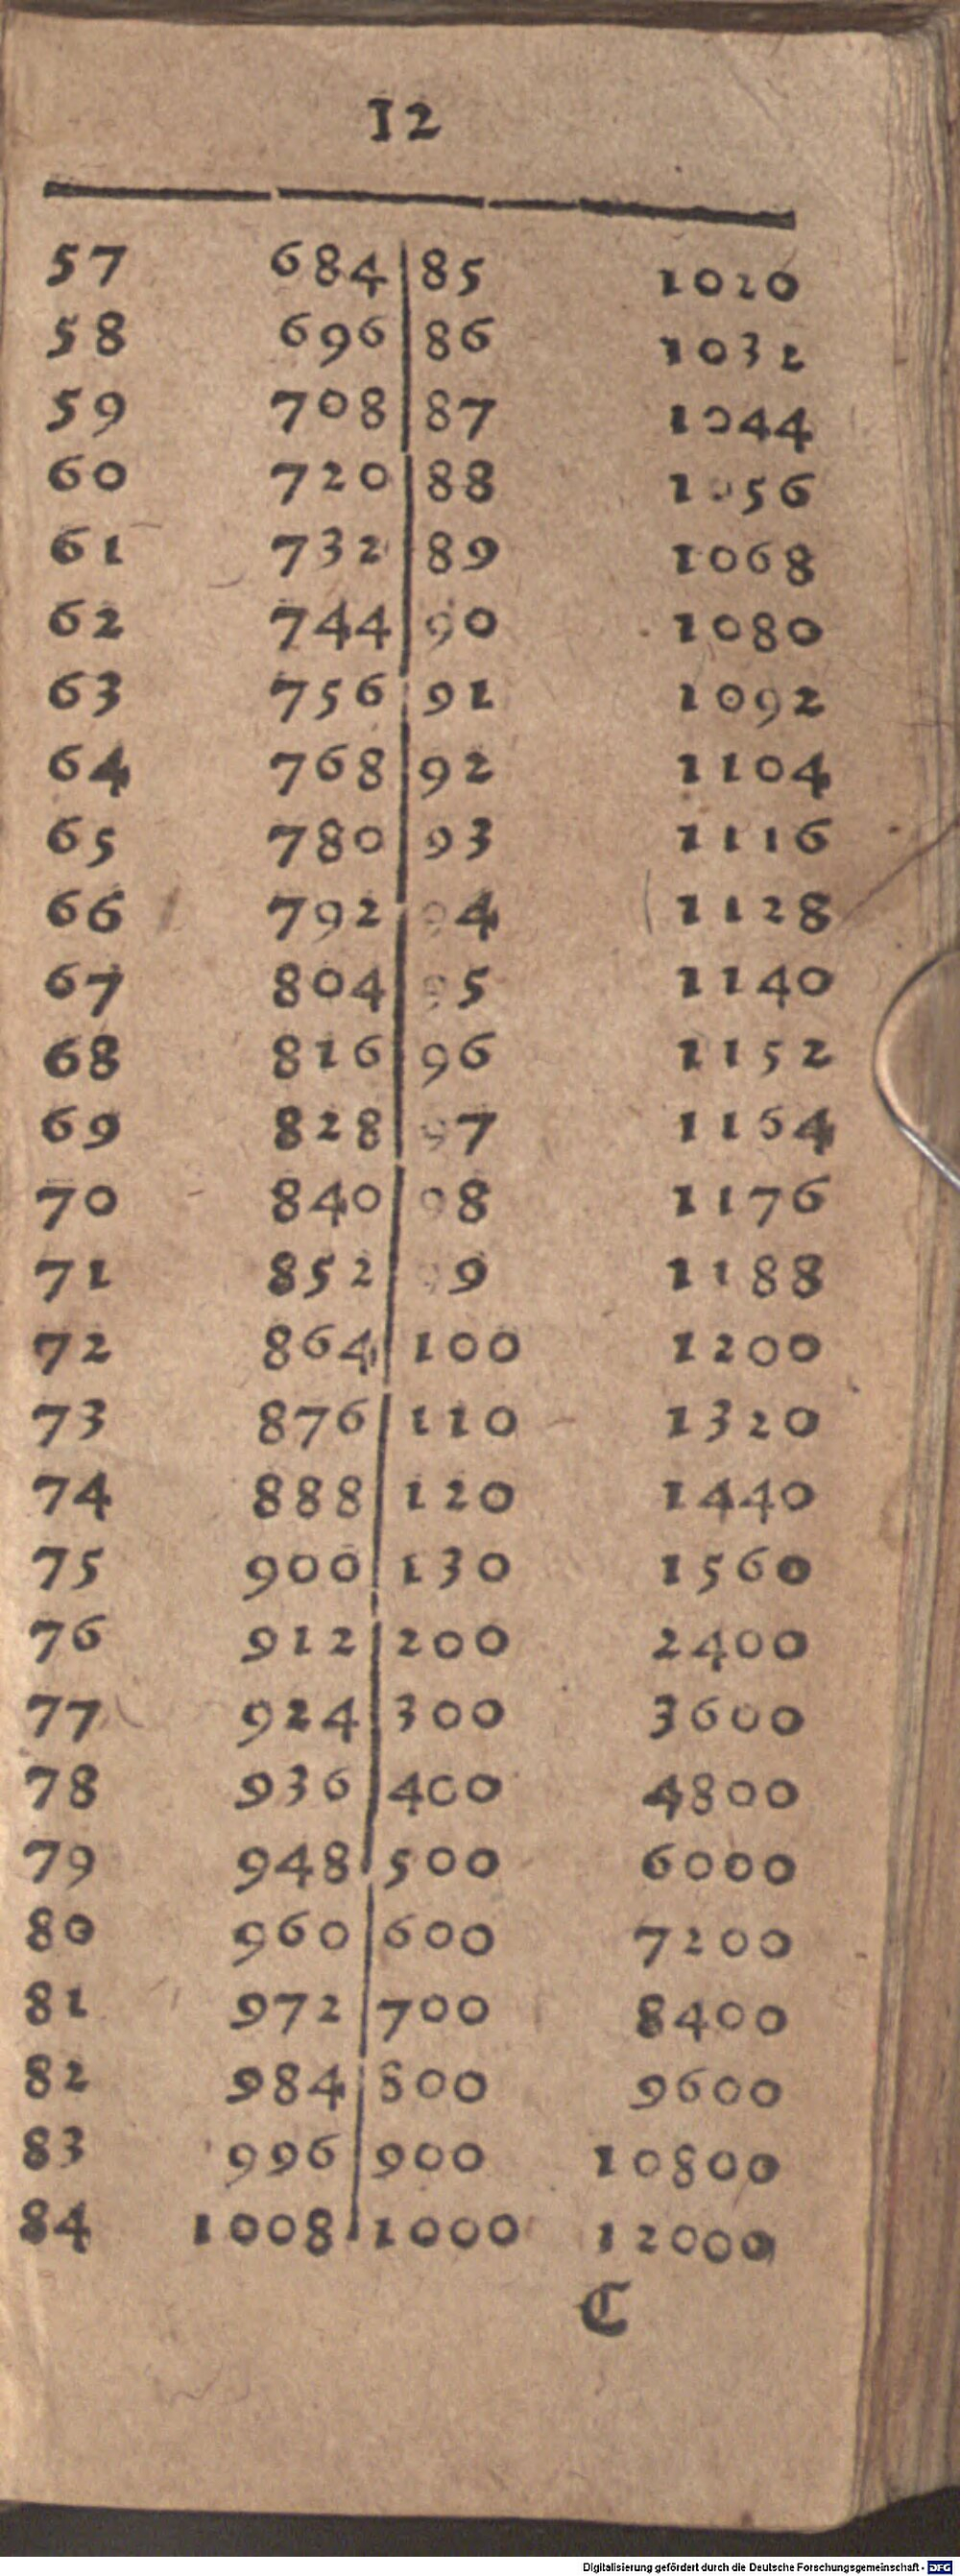 12
57 684 85 1020
58 696 86 1032
59 708 87 1044
60 720 88 1056
61 732 89 1068
62 744 90 1080
63 756 91 1092
64 768 92 1104
65 780 93 1116
66 792 94 1128
67 804 95 1140
68 816 96 1152
69 828 97 1164
70 840 98 1176
71 852 99 1188
72 864 100 1200
73 876 110 1320
74 888 120 1440
75 900 130 1560
76 912 200 2400
77 924 300 3600
78 936 400 4800
79 948 500 6000
80 960 600 7200
81 972 700 8400
82 984 800 9600
83 996 900 10800
84 1008 1000 12000
C
Digitalisierung gefördert durch die Deutsche Forschungsgemeinschaft - DFG